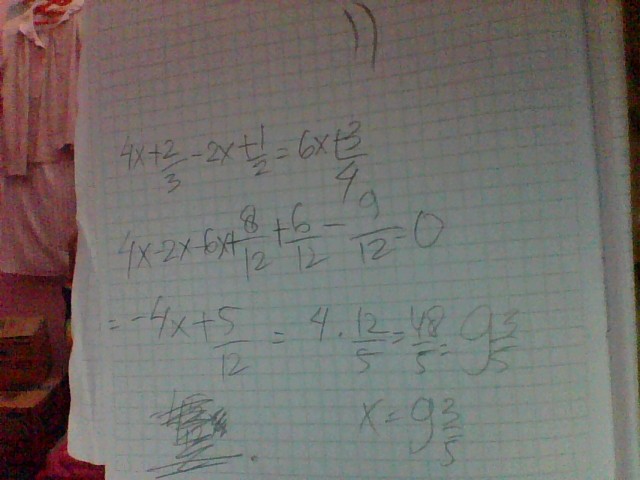 11
4x+2/3-2x+1/2=6x+3/4
4x-2x-6x+8/12+6/12-9/12=0
=-4x+5/12=4·12/5=48/5=9 3/5
x=9 3/5